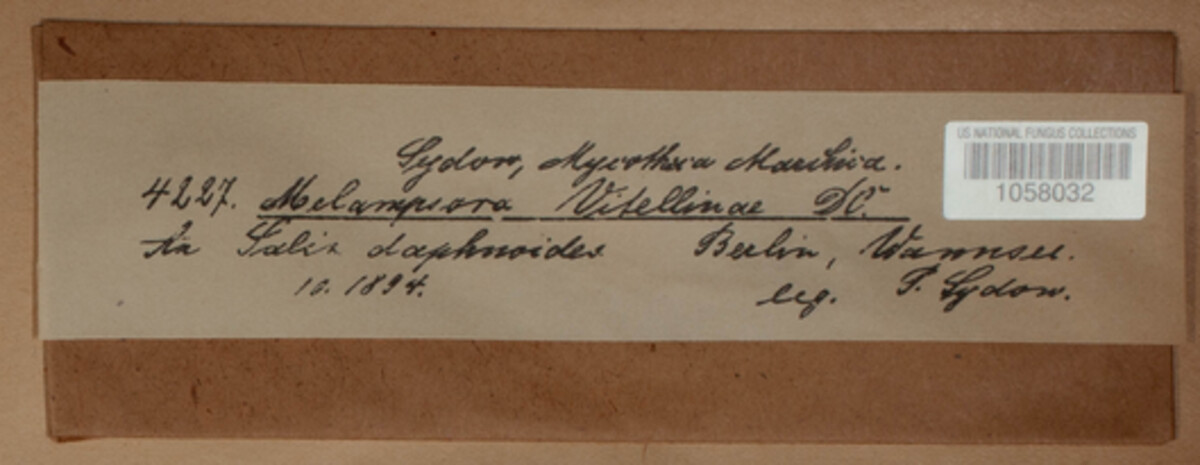 Sydow, Mycotheca Marchica.
4227. Melampsora Vitellinae DC.
An Salix daphnoides Berlin, Wannsee.
10. 1894. leg. P. Sydow.
US NATIONAL FUNGUS COLLECTIONS
1058032